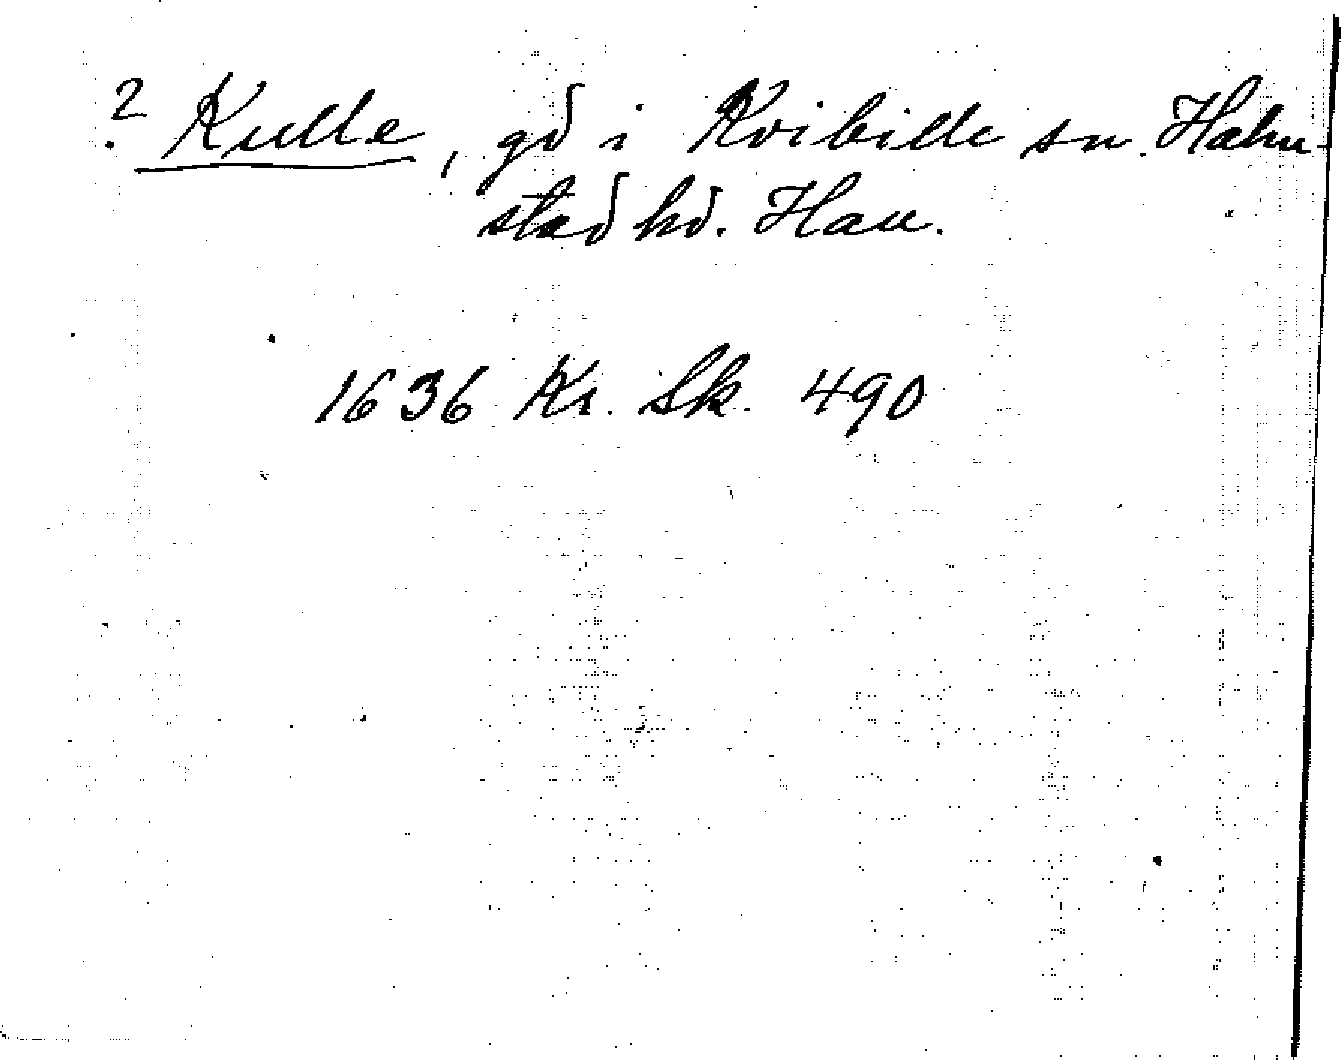 ? Kulle, gd i Kvibille sn. Halm-
stad hd. Hall.
1636 Kr. Sk. 490